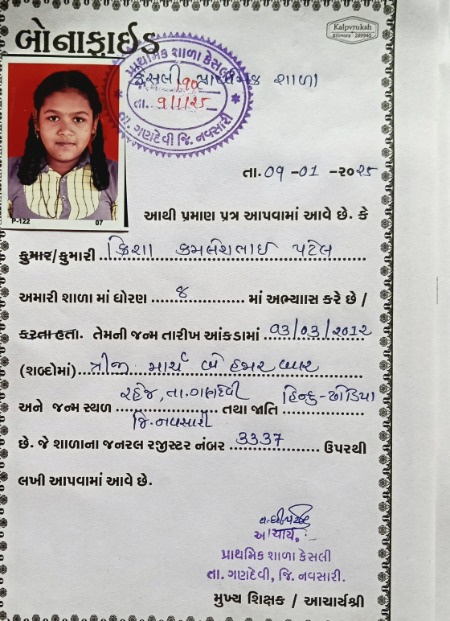 Kalpvruksh
બોનાફાઈડ
પ્રાથમિક શાળા કેસલી
કેસલી પ્રાથમિક શાળા
તા. ૯/૧/૨૫
તા. ગણદેવી જિ. નવસારી
તા. ૦૧ -૦૧ -૨૦૨૫
P-122 07
આથી પ્રમાણ પત્ર આપવામાં આવે છે. કે
કુમાર/કુમારી ક્રિશા કમલેશભાઈ પટેલ
અમારી શાળા માં ધોરણ ૭ માં અભ્યાસ કરે છે /
કરતા હતા. તેમની જન્મ તારીખ આંકડામાં ૦૩/૦૩/૨૦૧૨
(શબ્દોમાં) ત્રીજી માર્ચ બે હજાર બાર
રહેજ, તા. ગણદેવી હિન્દુ-ધોડિયા
અને જન્મ સ્થળ તથા જાતિ
જિ. નવસારી
છે. જે શાળાના જનરલ રજીસ્ટર નંબર 3337 ઉપરથી
લખી આપવામાં આવે છે.
આચાર્ય,
પ્રાથમિક શાળા કેસલી
તા. ગણદેવી, જિ. નવસારી.
મુખ્ય શિક્ષક / આચાર્યશ્રી